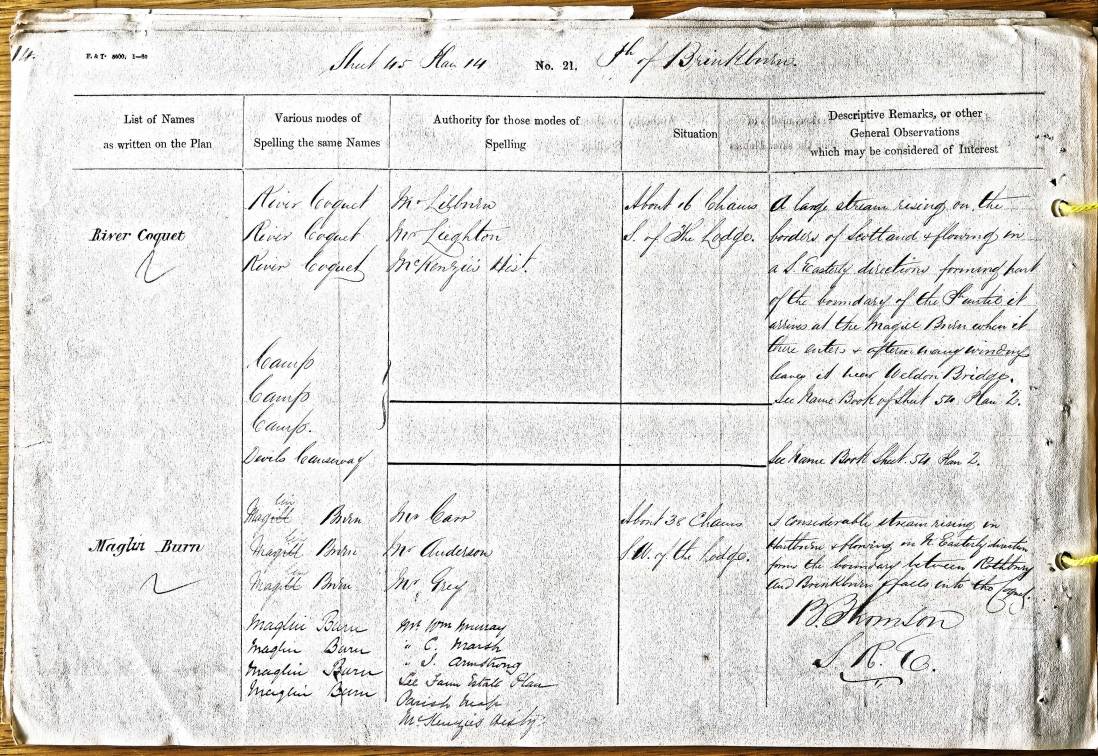 14.
Sheet 45 Plan 14 No. 21. Ph of Brinkburn.
List of Names
as written on the Plan
Various modes of
Spelling the same Names
Authority for those modes of
Spelling
Situation
Descriptive Remarks, or other
General Observations
which may be considered of Interest
River Coquet
River Coquet Mr Lilburn About 16 Chains
River Coquet Mr Leighton S. of The Lodge.
River Coquet McKenzie's Hist.
A large stream rising on the
borders of Scotland & flowing in
a S. Easterly direction forming part
of the boundary of the Ph until it
arrives at the Magill Burn when it
there enters & after many windings
leaves it near Weldon Bridge.
Camp
Camp
Camp.
See Name Book of Sheet 54 Plan 2.
Devils Causeway See Name Book Sheet 54 Plan 2.
Maglin Burn
Magill lin Burn Mr Carr About 38 Chains
Magill lin Burn Mr Anderson S.W. of the Lodge.
Magill lin Burn Mr Grey
Maglin Burn Mr Wm Murray
Maglin Burn " C. Marsh
Maglin Burn " J. Armstrong
Maglin Burn See Farm Estate Plan
Parish Map
McKenzies Histy.
A considerable stream rising in
Hartburn & flowing in N Easterly direction
forms the boundary between Rothbury
and Brinkburn & falls into the Coquet.
B. Thomson
S. R. E.